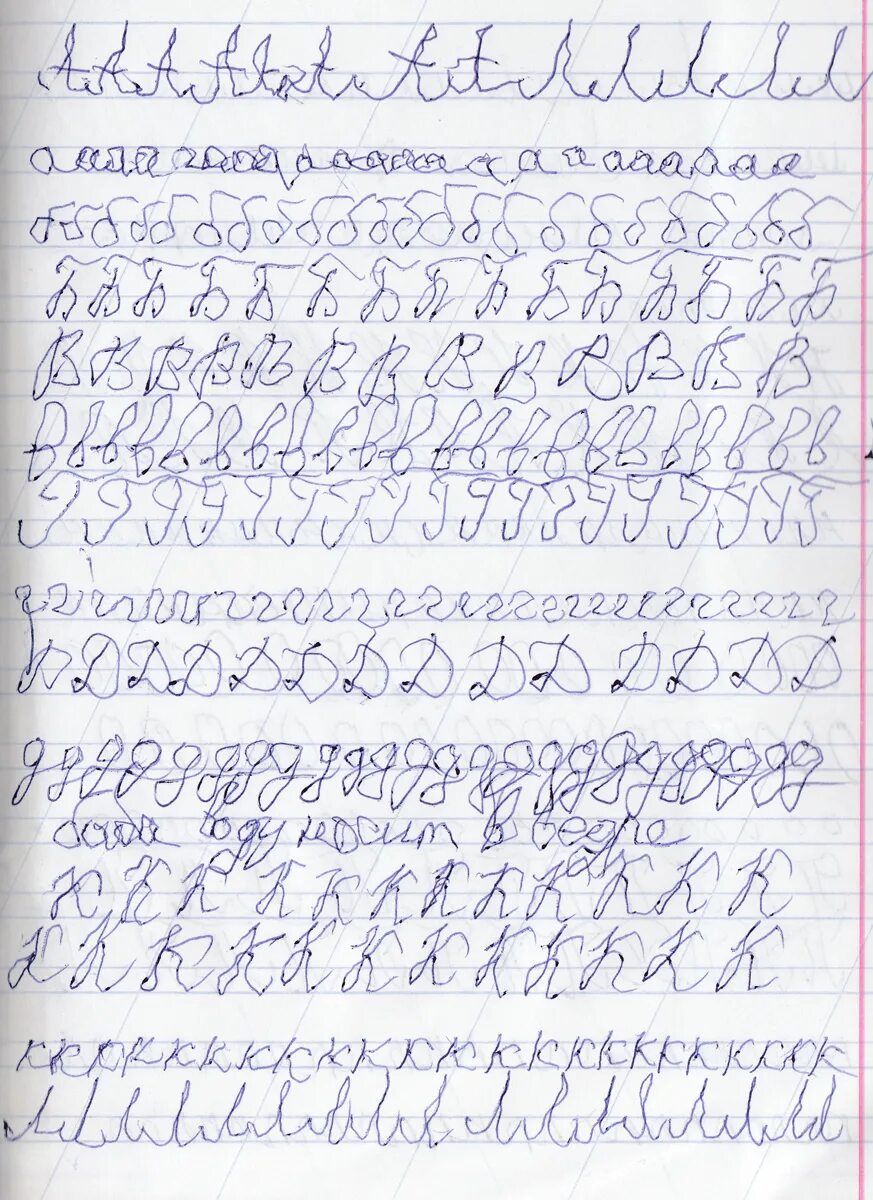 А А А А А А А А Л Л Л Л Л
а а а а а а а а а а а а а а а а а а а а
б б б б б б б б б б б б б б б б б б б б б б б
Б Б Б Б Б Б Б Б Б Б Б Б Б Б Б
В В В В В В В В В В В В В
в в в в в в в в в в в в в в в в в в в в в в
Г Г Г Г Г Г Г Г Г Г Г Г Г Г Г Г Г Г
г г г г г г г г г г г г г г г г г г г г г г г г
Д Д Д Д Д Д Д Д Д Д Д Д Д Д
д д д д д д д д д д д д д д д д д д д д д д
воду носит в ведре
К К К К К К К К К К К К
К К К К К К К К К К К К
к к к к к к к к к к к к к к к к к к к к к к к
Л Л Л Л Л Л Л Л Л Л Л Л Л Л Л Л